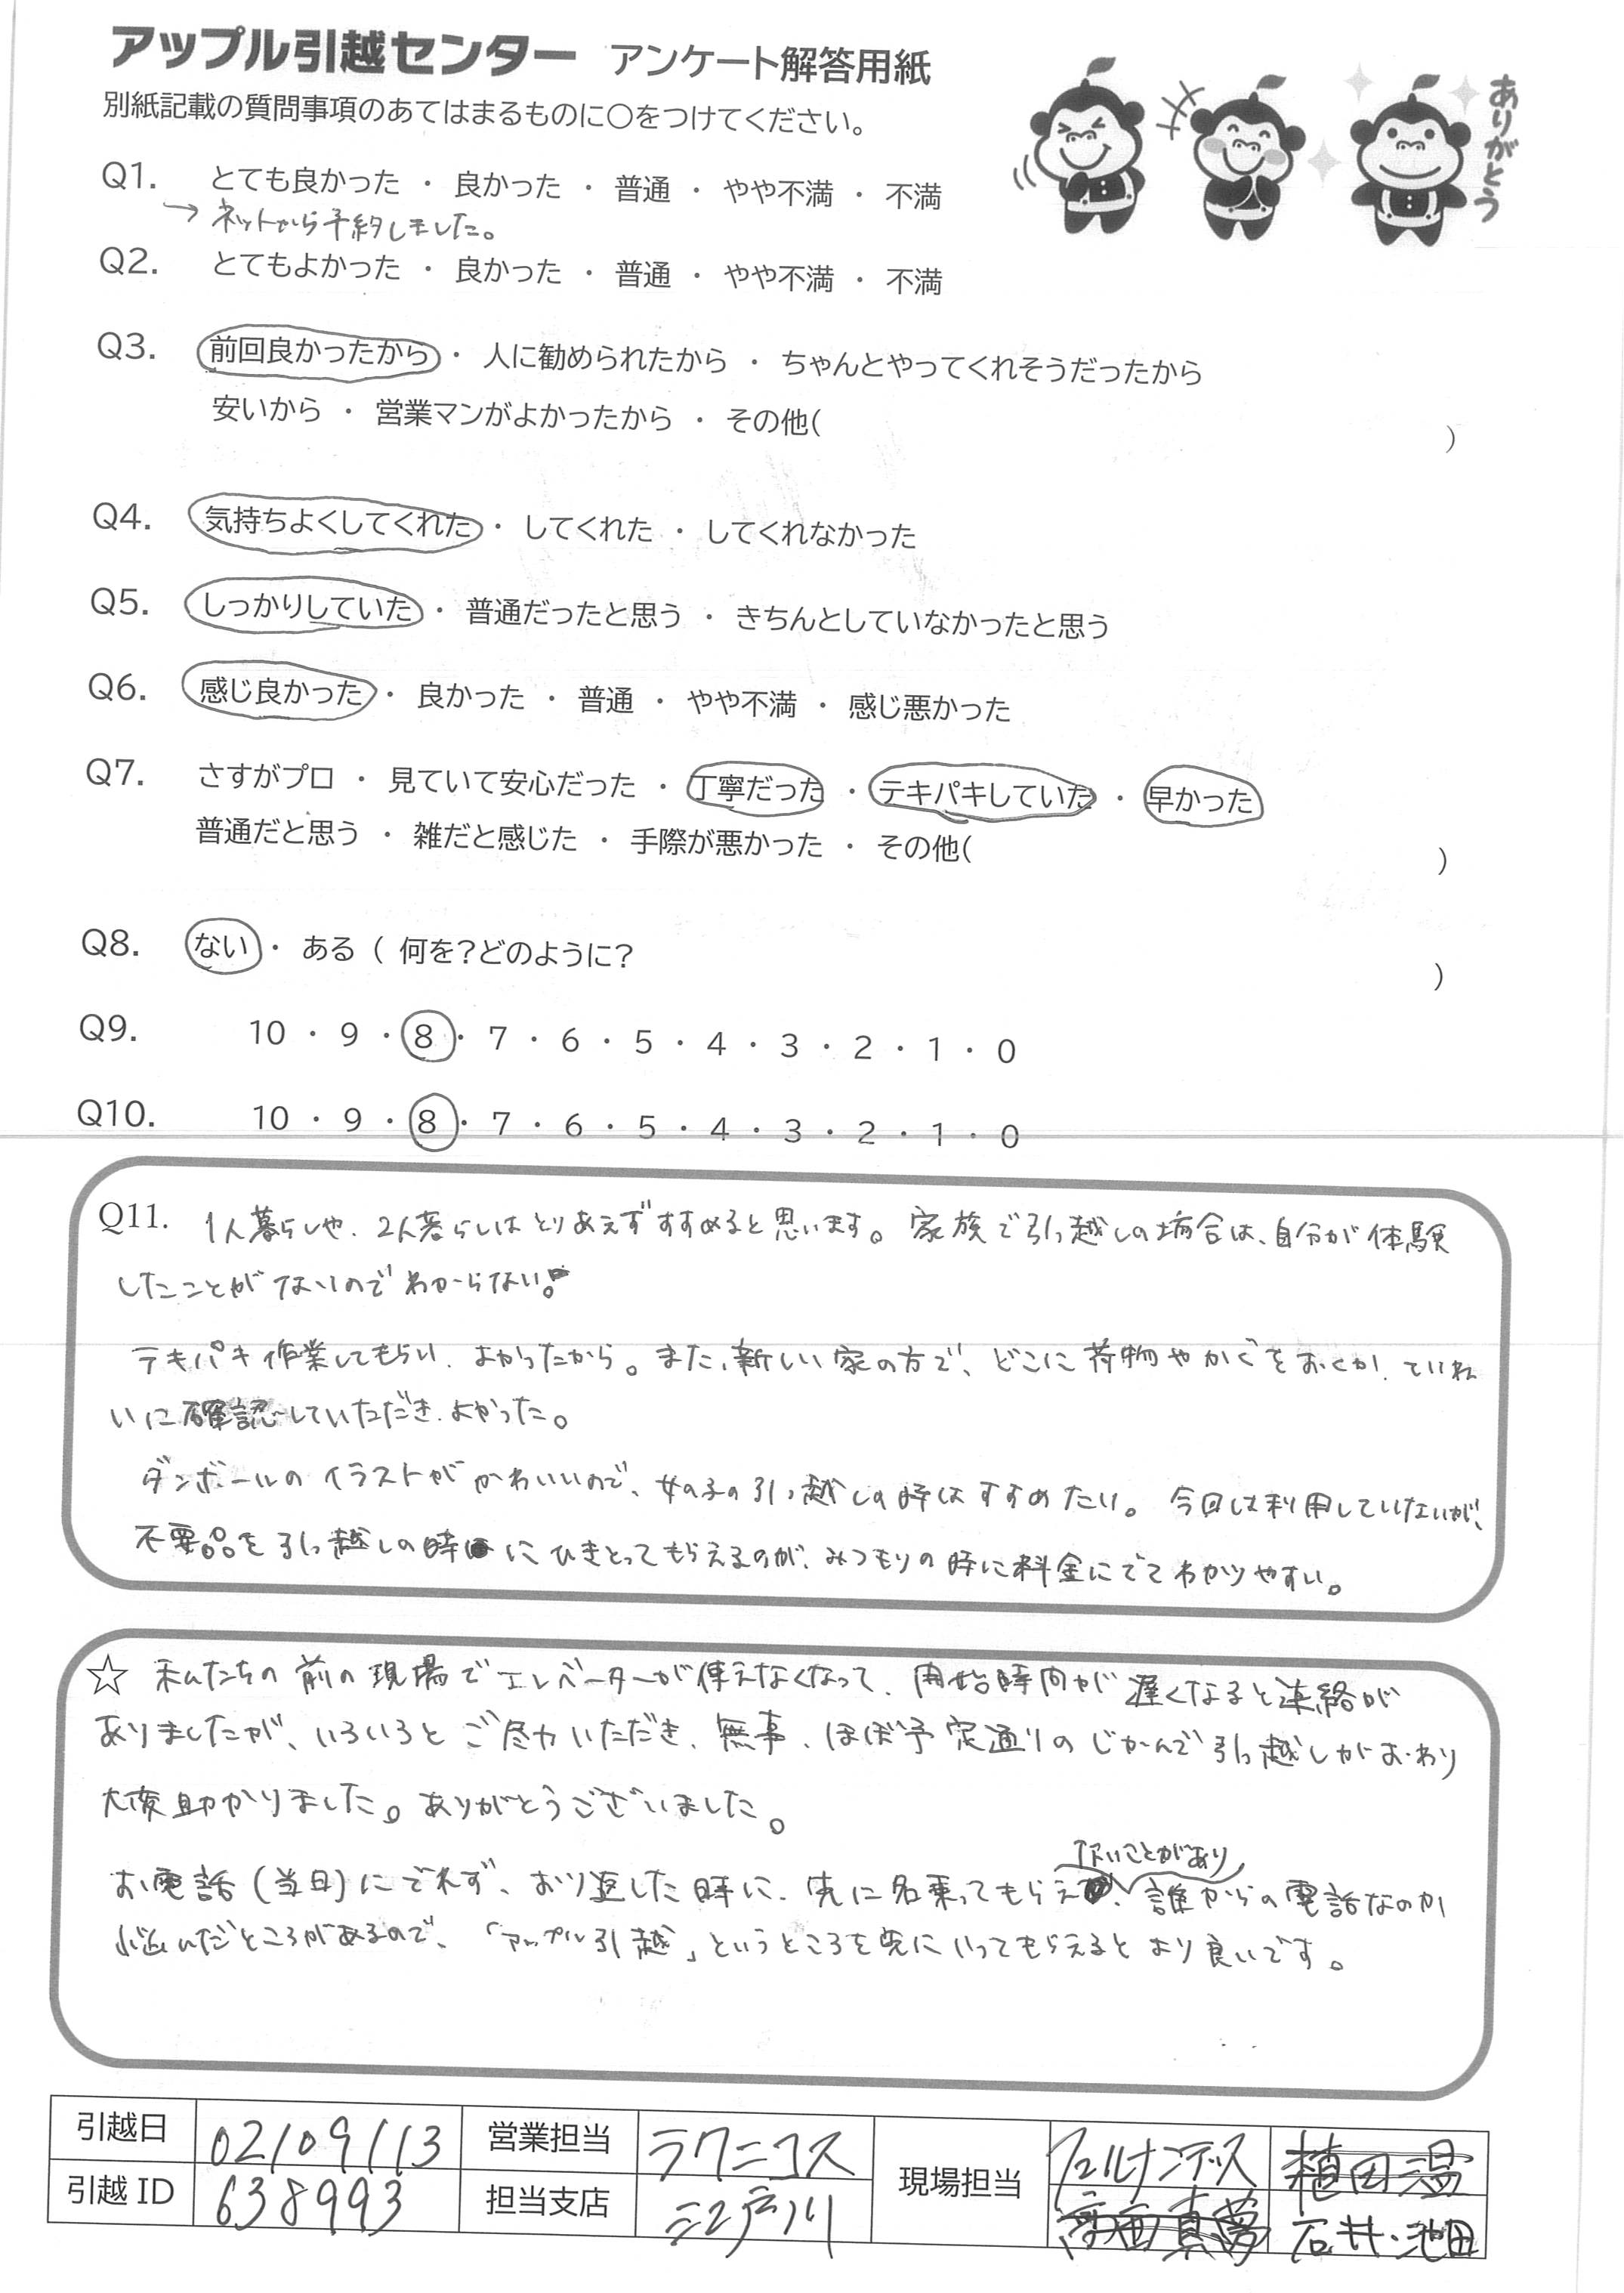 アップル引越センター アンケート解答用紙
別紙記載の質問事項のあてはまるものに○をつけてください。
ありがとう
Q1. とても良かった ・ 良かった ・ 普通 ・ やや不満 ・ 不満
→ ネットから予約しました。
Q2. とてもよかった ・ 良かった ・ 普通 ・ やや不満 ・ 不満
Q3. 前回良かったから ・ 人に勧められたから ・ ちゃんとやってくれそうだったから
安いから ・ 営業マンがよかったから ・ その他( )
Q4. 気持ちよくしてくれた ・ してくれた ・ してくれなかった
Q5. しっかりしていた ・ 普通だったと思う ・ きちんとしていなかったと思う
Q6. 感じ良かった ・ 良かった ・ 普通 ・ やや不満 ・ 感じ悪かった
Q7. さすがプロ ・ 見ていて安心だった ・ 丁寧だった ・ テキパキしていた ・ 早かった
普通だと思う ・ 雑だと感じた ・ 手際が悪かった ・ その他( )
Q8. ない ・ ある ( 何を?どのように? )
Q9. 10 ・ 9 ・ 8 ・ 7 ・ 6 ・ 5 ・ 4 ・ 3 ・ 2 ・ 1 ・ 0
Q10. 10 ・ 9 ・ 8 ・ 7 ・ 6 ・ 5 ・ 4 ・ 3 ・ 2 ・ 1 ・ 0
Q11. 1人暮らしや、2人暮らしはとりあえずすすめると思います。家族で引っ越しの場合は、自分が体験
したことがないのでわからない。
テキパキ作業してもらい、よかったから。また、新しい家の方で、どこに荷物やかぐをおくか、ていね
いに確認していただき、よかった。
ダンボールのイラストがかわいいので、女の子の引っ越しの時はすすめたい。今回は利用していないが、
不要品を引っ越しの時にひきとってもらえるのが、みつもりの時に料金にでてわかりやすい。
☆ 私たちの前の現場でエレベーターが使えなくなって、開始時間が遅くなると連絡が
ありましたが、いろいろとご尽力いただき、無事、ほぼ予定通りのじかんで引っ越しがおわり
大変助かりました。ありがとうございました。
お電話(当日)にでれず、おり返した時に、先に名乗ってもらえないことがあり、誰からの電話なのか
悩んだところがあるので、「アップル引越」というところを先にいってもらえるとより良いです。
引越日 02/09/13 営業担当 ラクニコス 現場担当 フェルナンデス 植田温
引越 ID 638993 担当支店 江戸川 真夢 石井・池田